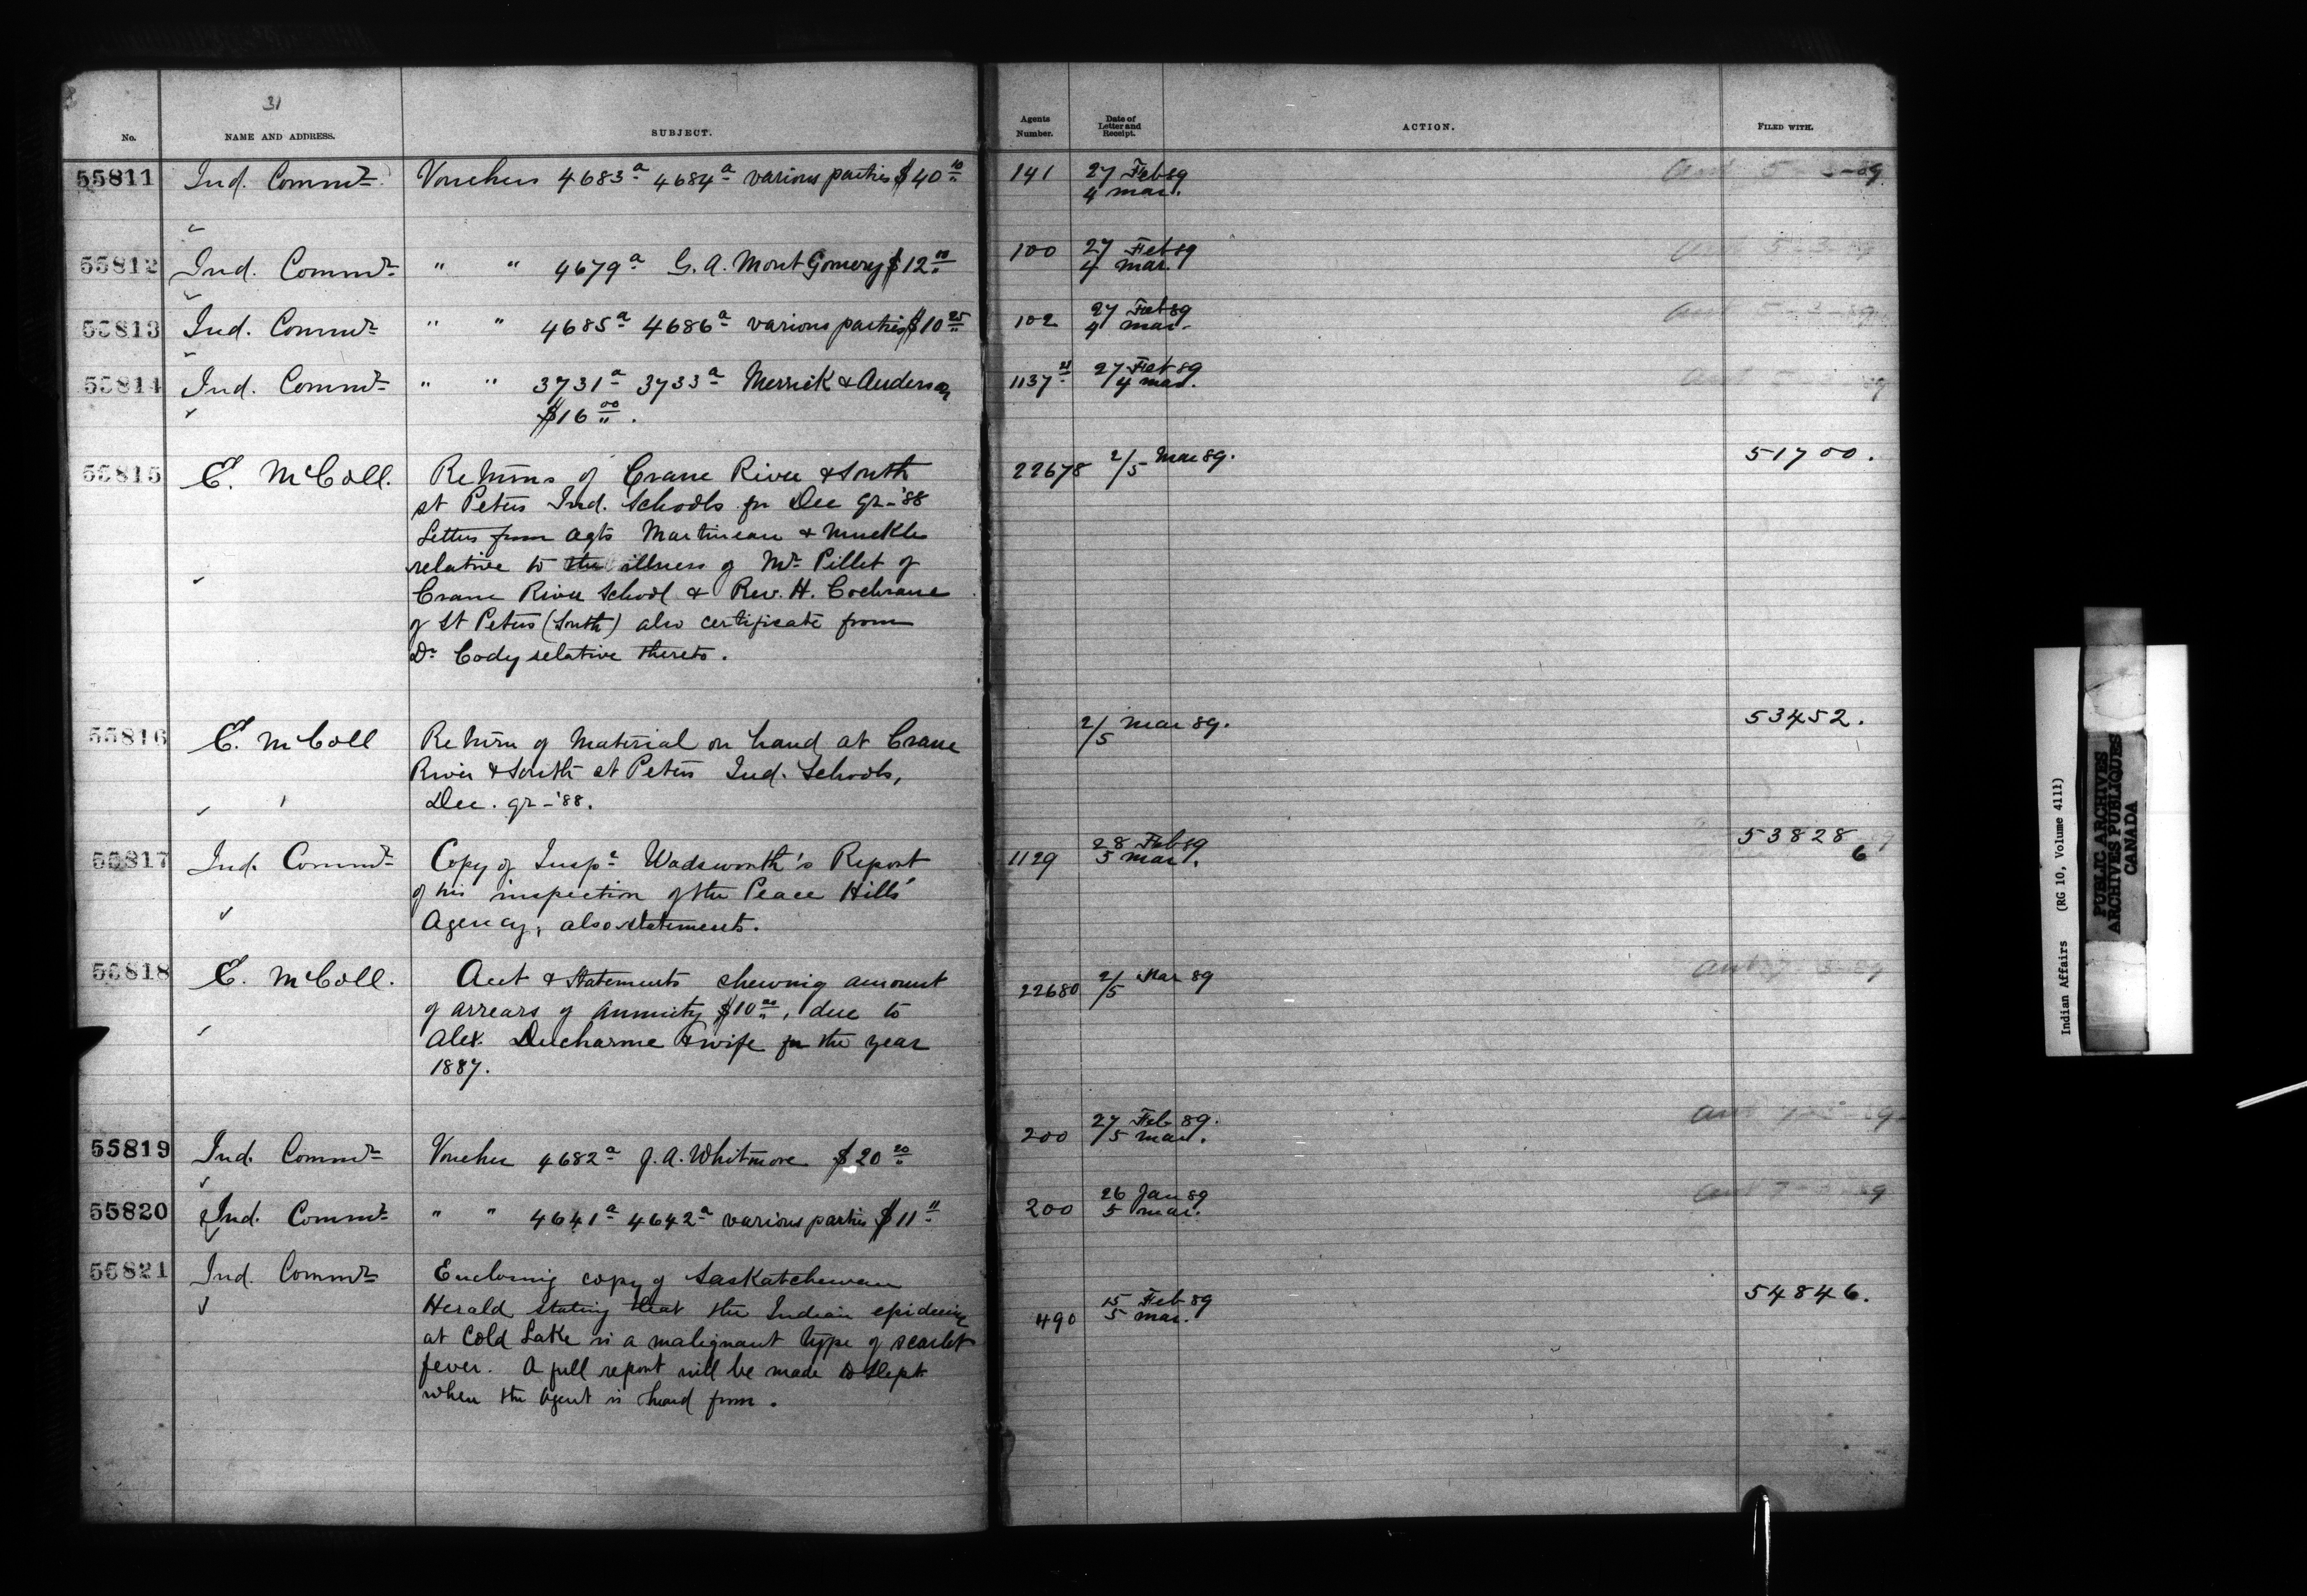 31
No. NAME AND ADDRESS. SUBJECT. Agents Number. Date of Letter and Receipt. ACTION. FILED WITH.
55811 Ind. Commr. Vouchers 4683a 4684a various parties $40 10 141 27 Feb 89 5-3-89
4 Mar.
55812 Ind. Commr " " 4679a G. A. MontGomery $12 00 100 27 Feb 89 5-3-89
4 Mar.
55813 Ind. Commr " " 4685a 4686a various parties $10 25 102 27 Feb 89 5-3-89
4 Mar.
55814 Ind. Commr " " 3731a 3733a Merrick & Anderson 1137 27 Feb 89
$16 00. 4 Mar.
55815 E. McColl. Returns of Crane River & South 22678 2/5 Mar 89. 51700.
st Peters Ind. Schools for Dec qr-'88
Letters from Agts Martineau & Muckle
relative to the illness of Mr Pillet of
Crane River School & Rev. H. Cochrane
of St Peters (South) also certificate from
Dr Cody relative thereto.
55816 E. McColl Return of Material on hand at Crane 2/5 Mar 89. 53452.
River & South st Peters Ind. Schools,
Dec. qr-'88.
55817 Ind. Commr Copy of Inspr Wadsworth's Report 1129 28 Feb 89 53828
of his inspection of the Peace Hills' 5 Mar. 6
Agency, also statements.
55818 E. McColl. Acct & Statements shewing amount 22680 2/5 Mar 89
of arrears of annuity $10 00, due to
Alex. Ducharme & wife for the year
1887.
55819 Ind. Commr Voucher 4682a J. A. Whitmore $20 20 200 27 Feb 89.
5 Mar.
55820 Ind. Commr " " 4641a 4642a various parties $11 200 26 Jan 89
5 Mar.
55821 Ind. Commr Enclosing copy of Saskatchewan 490 15 Feb 89 54846.
Herald stating that the Indian epidemic 5 Mar.
at Cold Lake is a malignant type of scarlet
fever. A full report will be made to Dept
when the Agent is heard from.
Indian Affairs (RG 10, Volume 4111)
PUBLIC ARCHIVES
ARCHIVES PUBLIQUES
CANADA